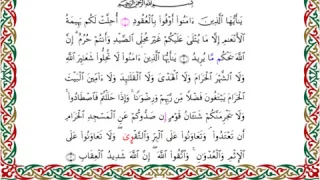 بسم الله الرحمن الرحيم
يَٰٓأَيُّهَا ٱلَّذِينَ ءَامَنُوٓا۟ أَوْفُوا۟ بِٱلْعُقُودِ ۚ أُحِلَّتْ لَكُم بَهِيمَةُ
ٱلْأَنْعَٰمِ إِلَّا مَا يُتْلَىٰ عَلَيْكُمْ غَيْرَ مُحِلِّى ٱلصَّيْدِ وَأَنتُمْ حُرُمٌ ۗ إِنَّ
ٱللَّهَ يَحْكُمُ مَا يُرِيدُ ۝ يَٰٓأَيُّهَا ٱلَّذِينَ ءَامَنُوا۟ لَا تُحِلُّوا۟ شَعَٰٓئِرَ ٱللَّهِ
وَلَا ٱلشَّهْرَ ٱلْحَرَامَ وَلَا ٱلْهَدْىَ وَلَا ٱلْقَلَٰٓئِدَ وَلَآ ءَآمِّينَ ٱلْبَيْتَ
ٱلْحَرَامَ يَبْتَغُونَ فَضْلًا مِّن رَّبِّهِمْ وَرِضْوَٰنًا ۚ وَإِذَا حَلَلْتُمْ فَٱصْطَادُوا۟ ۚ
وَلَا يَجْرِمَنَّكُمْ شَنَـَٔانُ قَوْمٍ أَن صَدُّوكُمْ عَنِ ٱلْمَسْجِدِ ٱلْحَرَامِ
أَن تَعْتَدُوا۟ ۘ وَتَعَاوَنُوا۟ عَلَى ٱلْبِرِّ وَٱلتَّقْوَىٰ ۖ وَلَا تَعَاوَنُوا۟ عَلَى
ٱلْإِثْمِ وَٱلْعُدْوَٰنِ ۚ وَٱتَّقُوا۟ ٱللَّهَ ۖ إِنَّ ٱللَّهَ شَدِيدُ ٱلْعِقَابِ ۝